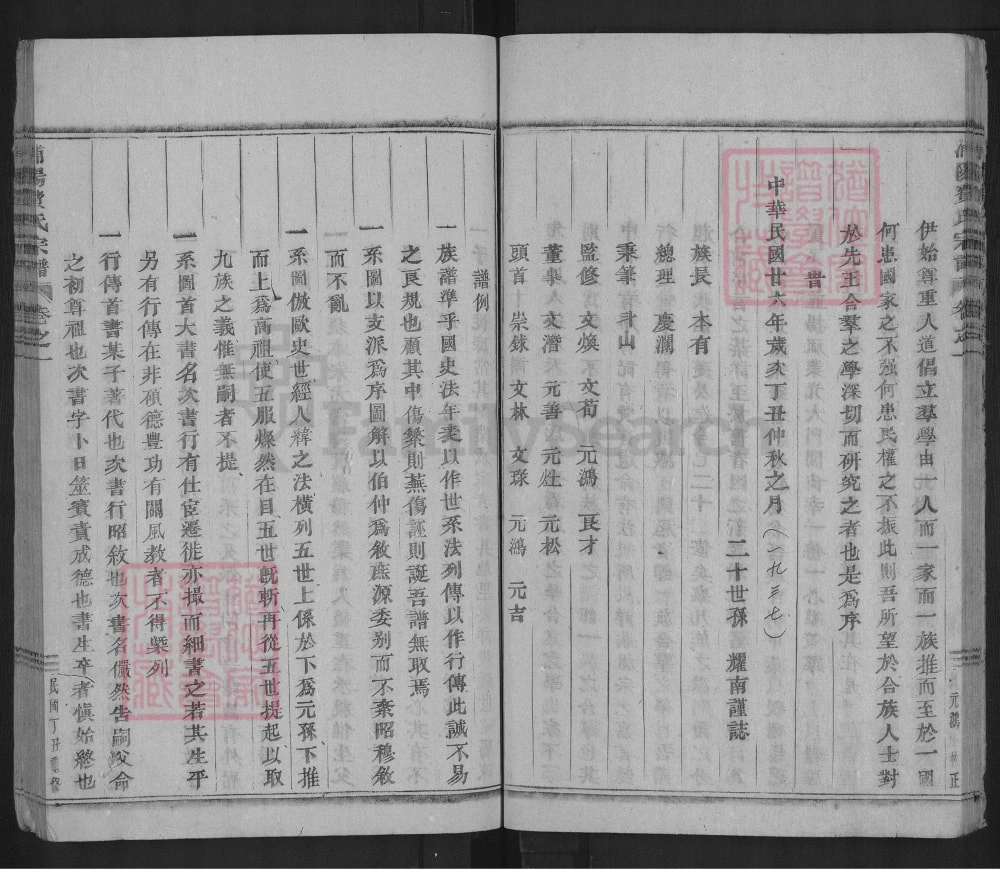 伊始尊重人道倡立羣學由一人而一家而一族推而至於一國
何患國家之不强何患民權之不振此則吾所望於合族人士對
於先正合羣之學深切而研究之者也是為序
旹
中華民國廿六年歲亥丁丑仲秋之月（一九三七）
二十世孫 耀南謹誌
族長 本有
總理 慶瀾
秉筆 斗山
監修 文煥 文荀 元鴻 良才
董事 文濳 元善 元仕 元松
頭首 崇銾 文林 文琭 元鴻 元吉
元鴻 校正
譜例
一族譜準乎國史法年表以作世系法列傳以作行傳此誠不易
之良規也願其中傷縏則蕪傷誣則誕吾譜無取焉
一系圖以支派爲序圖解以伯仲爲敘庶源委别而不紊昭穆敘
而不亂
一系圖倣歐史世經人緯之法橫列五世上係於下爲元孫下推
而上爲高祖使五服燦然在目五世旣斬再從五世提起以取
九族之義惟無嗣者不提
一系圖首大書名次書行有仕宦遷徙亦撮而細書之若其生平
另有行傳在非碩德豐功有關風教者不得槩列
一行傳首書某子著代也次書行昭敘也次書名儼然告嗣父命
之初尊祖也次書字卜日筮賓責成德也書生卒者愼始終也
浦陽賈氏宗譜 卷之一
民國丁丑重修
FamilySearch